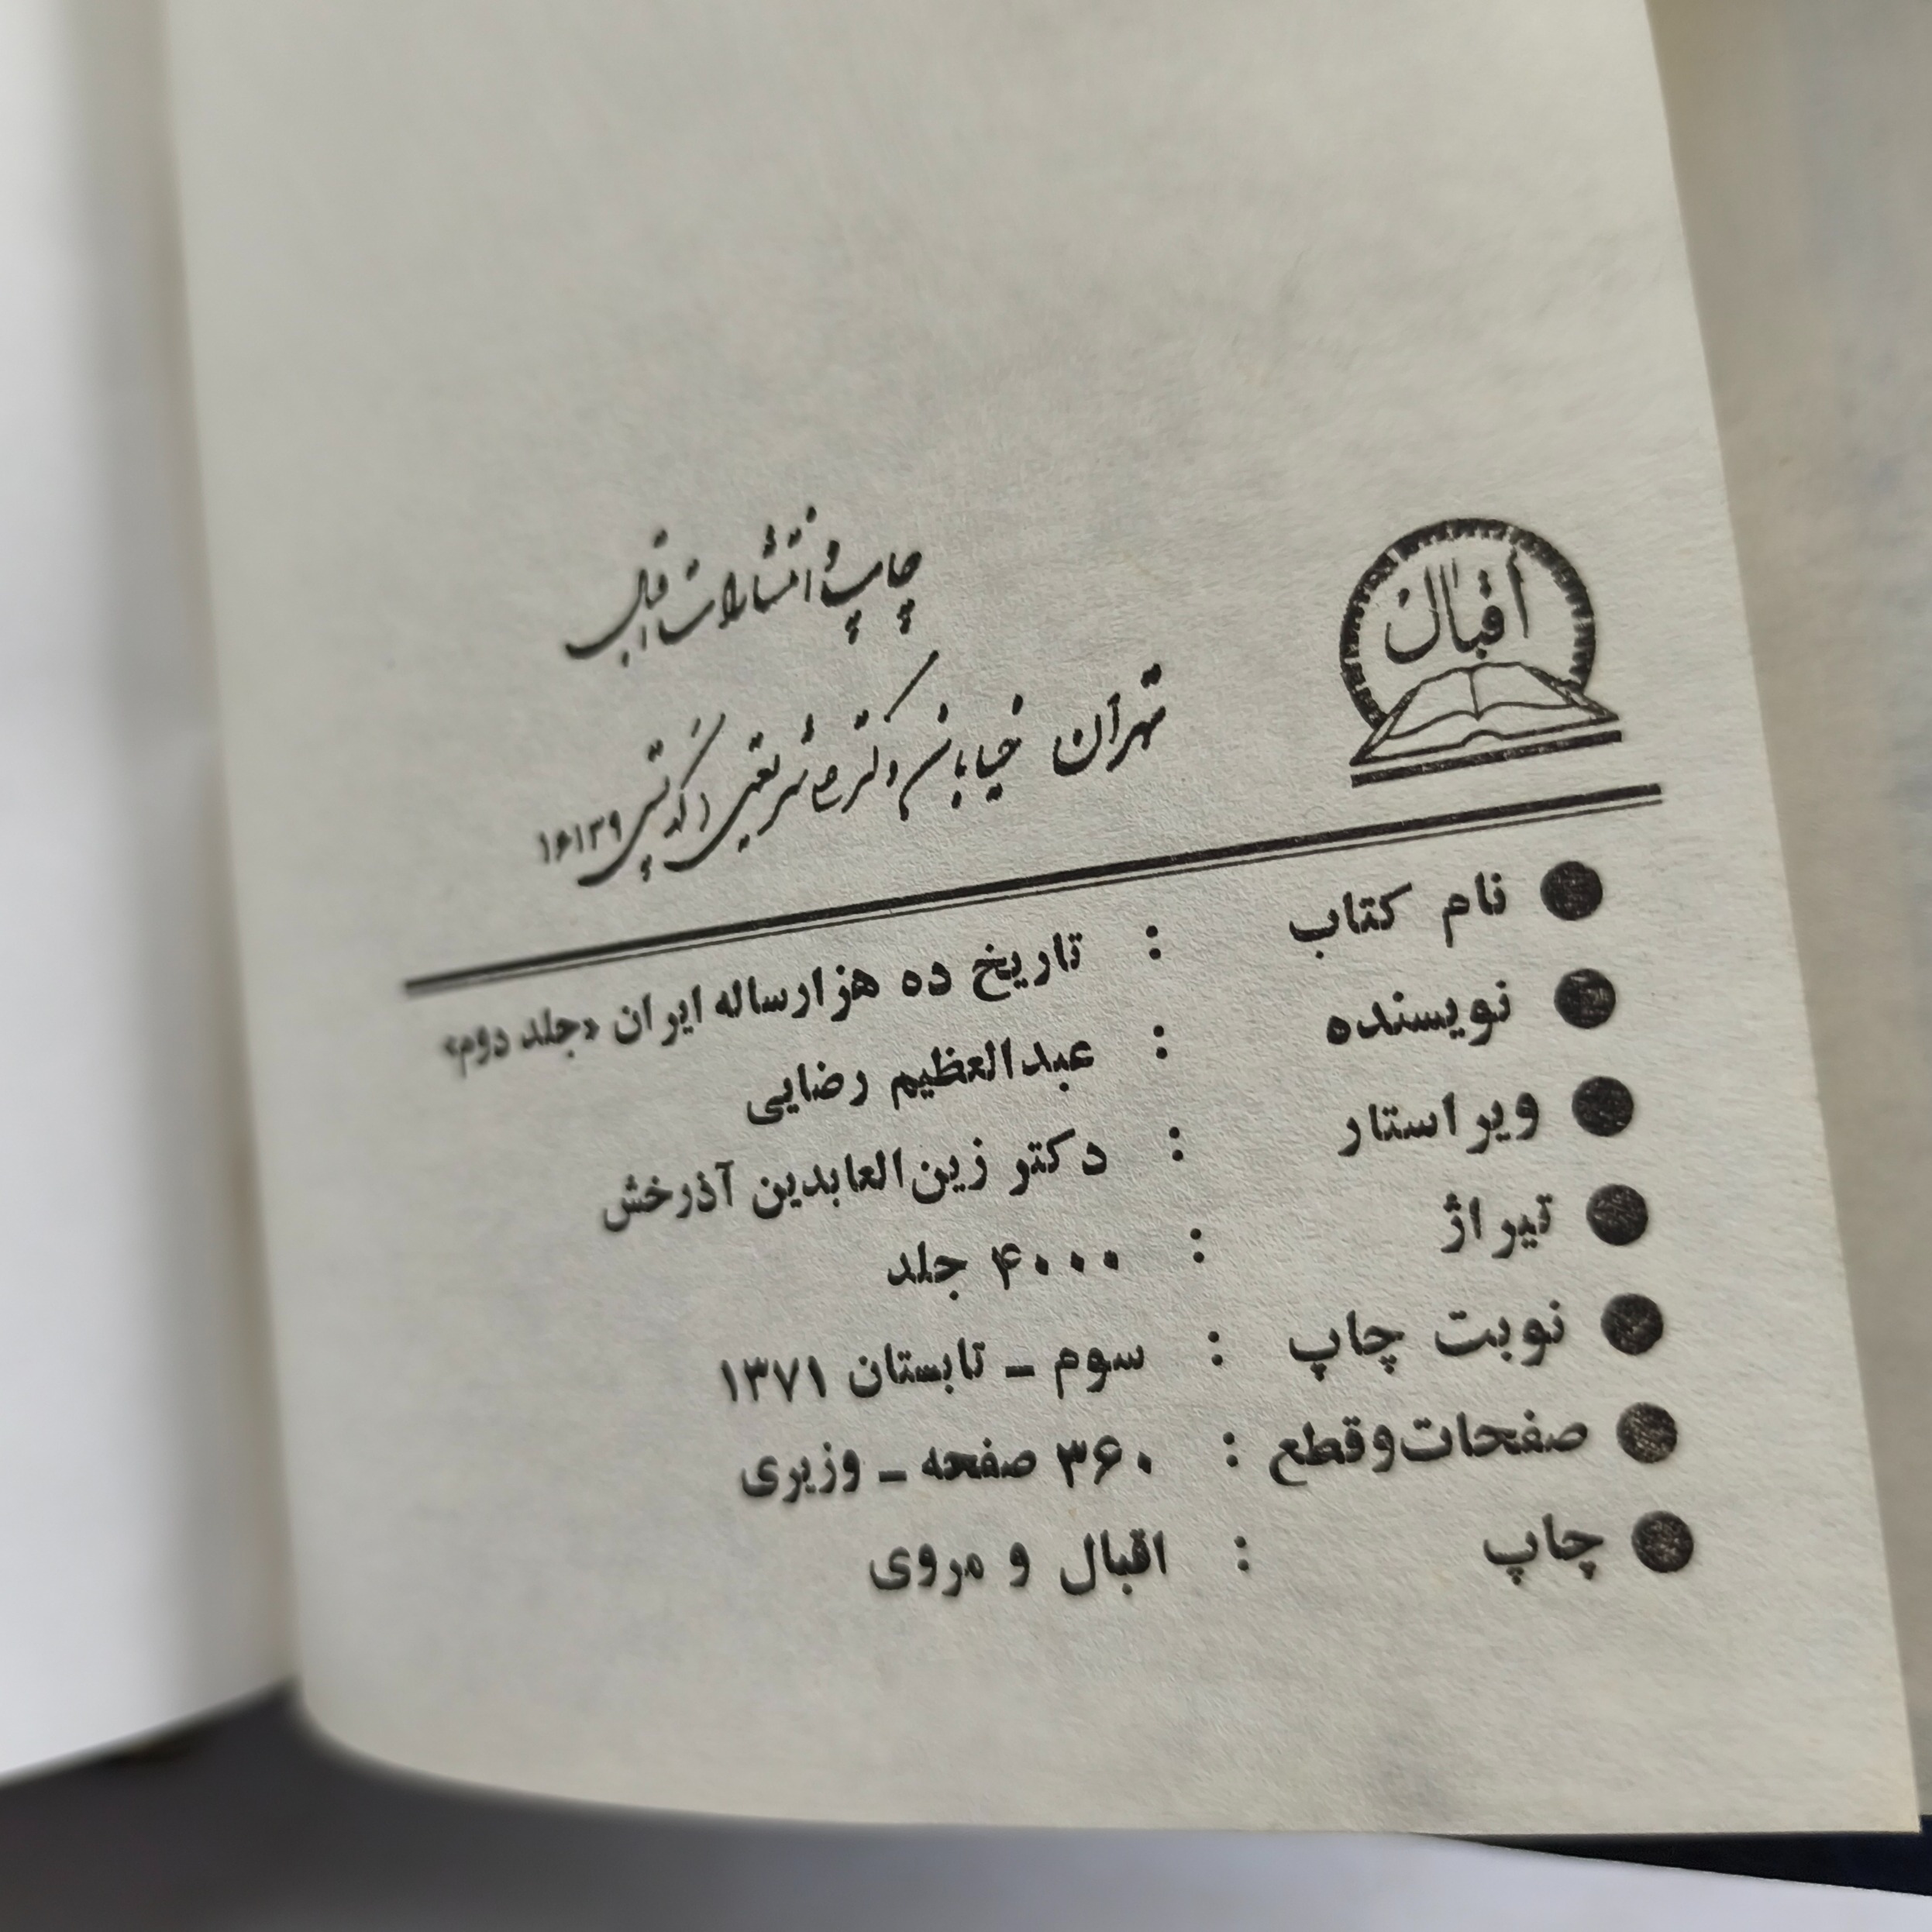 اقبال
چاپ و انتشارات اقبال
تهران خیابان دکتر علی شریعتی کد پستی ۱۶۱۳۹
نام کتاب : تاریخ ده هزارساله ایران «جلد دوم»
نویسنده : عبدالعظیم رضایی
ویراستار : دکتر زین‌العابدین آذرخش
تیراژ : ۴۰۰۰ جلد
نوبت چاپ : سوم ـ تابستان ۱۳۷۱
صفحات‌وقطع : ۳۶۰ صفحه ـ وزیری
چاپ : اقبال و مروی